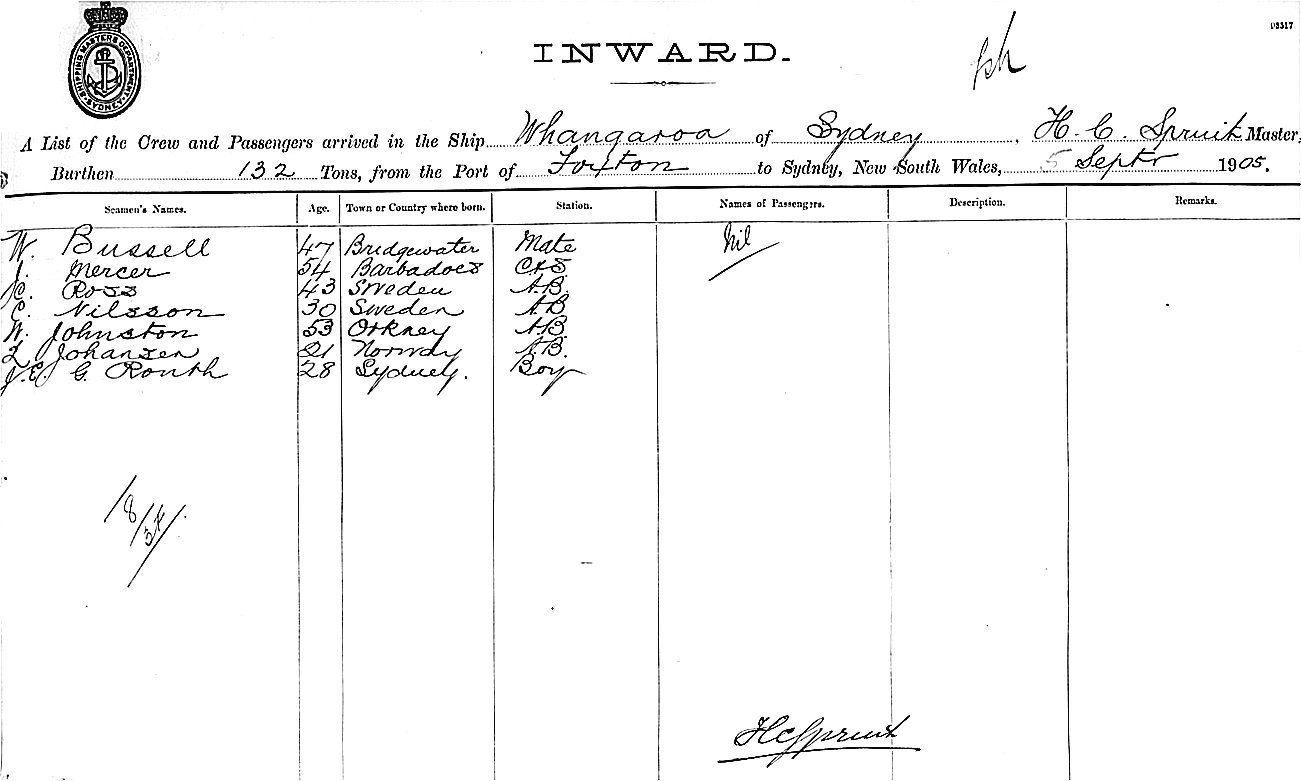 D3517
INWARD.
SHIPPING MASTERS DEPARTMENT SYDNEY
A List of the Crew and Passengers arrived in the Ship Whangaroa of Sydney, H. C. Spruit Master,
Burthen 132 Tons, from the Port of Foxton to Sydney, New South Wales, 5 Septr 1905.
Seamen's Names. Age. Town or Country where born. Station. Names of Passengers. Description. Remarks.
W. Bussell 47 Bridgewater Mate Nil
J. Mercer 54 Barbadoes C&S
Ross 43 Sweden A.B.
C. Nilsson 30 Sweden A.B
W. Johnston 53 Orkney A.B.
Johansen 21 Norway A.B.
J.E. G. Routh 28 Sydney. Boy
HCSpruit